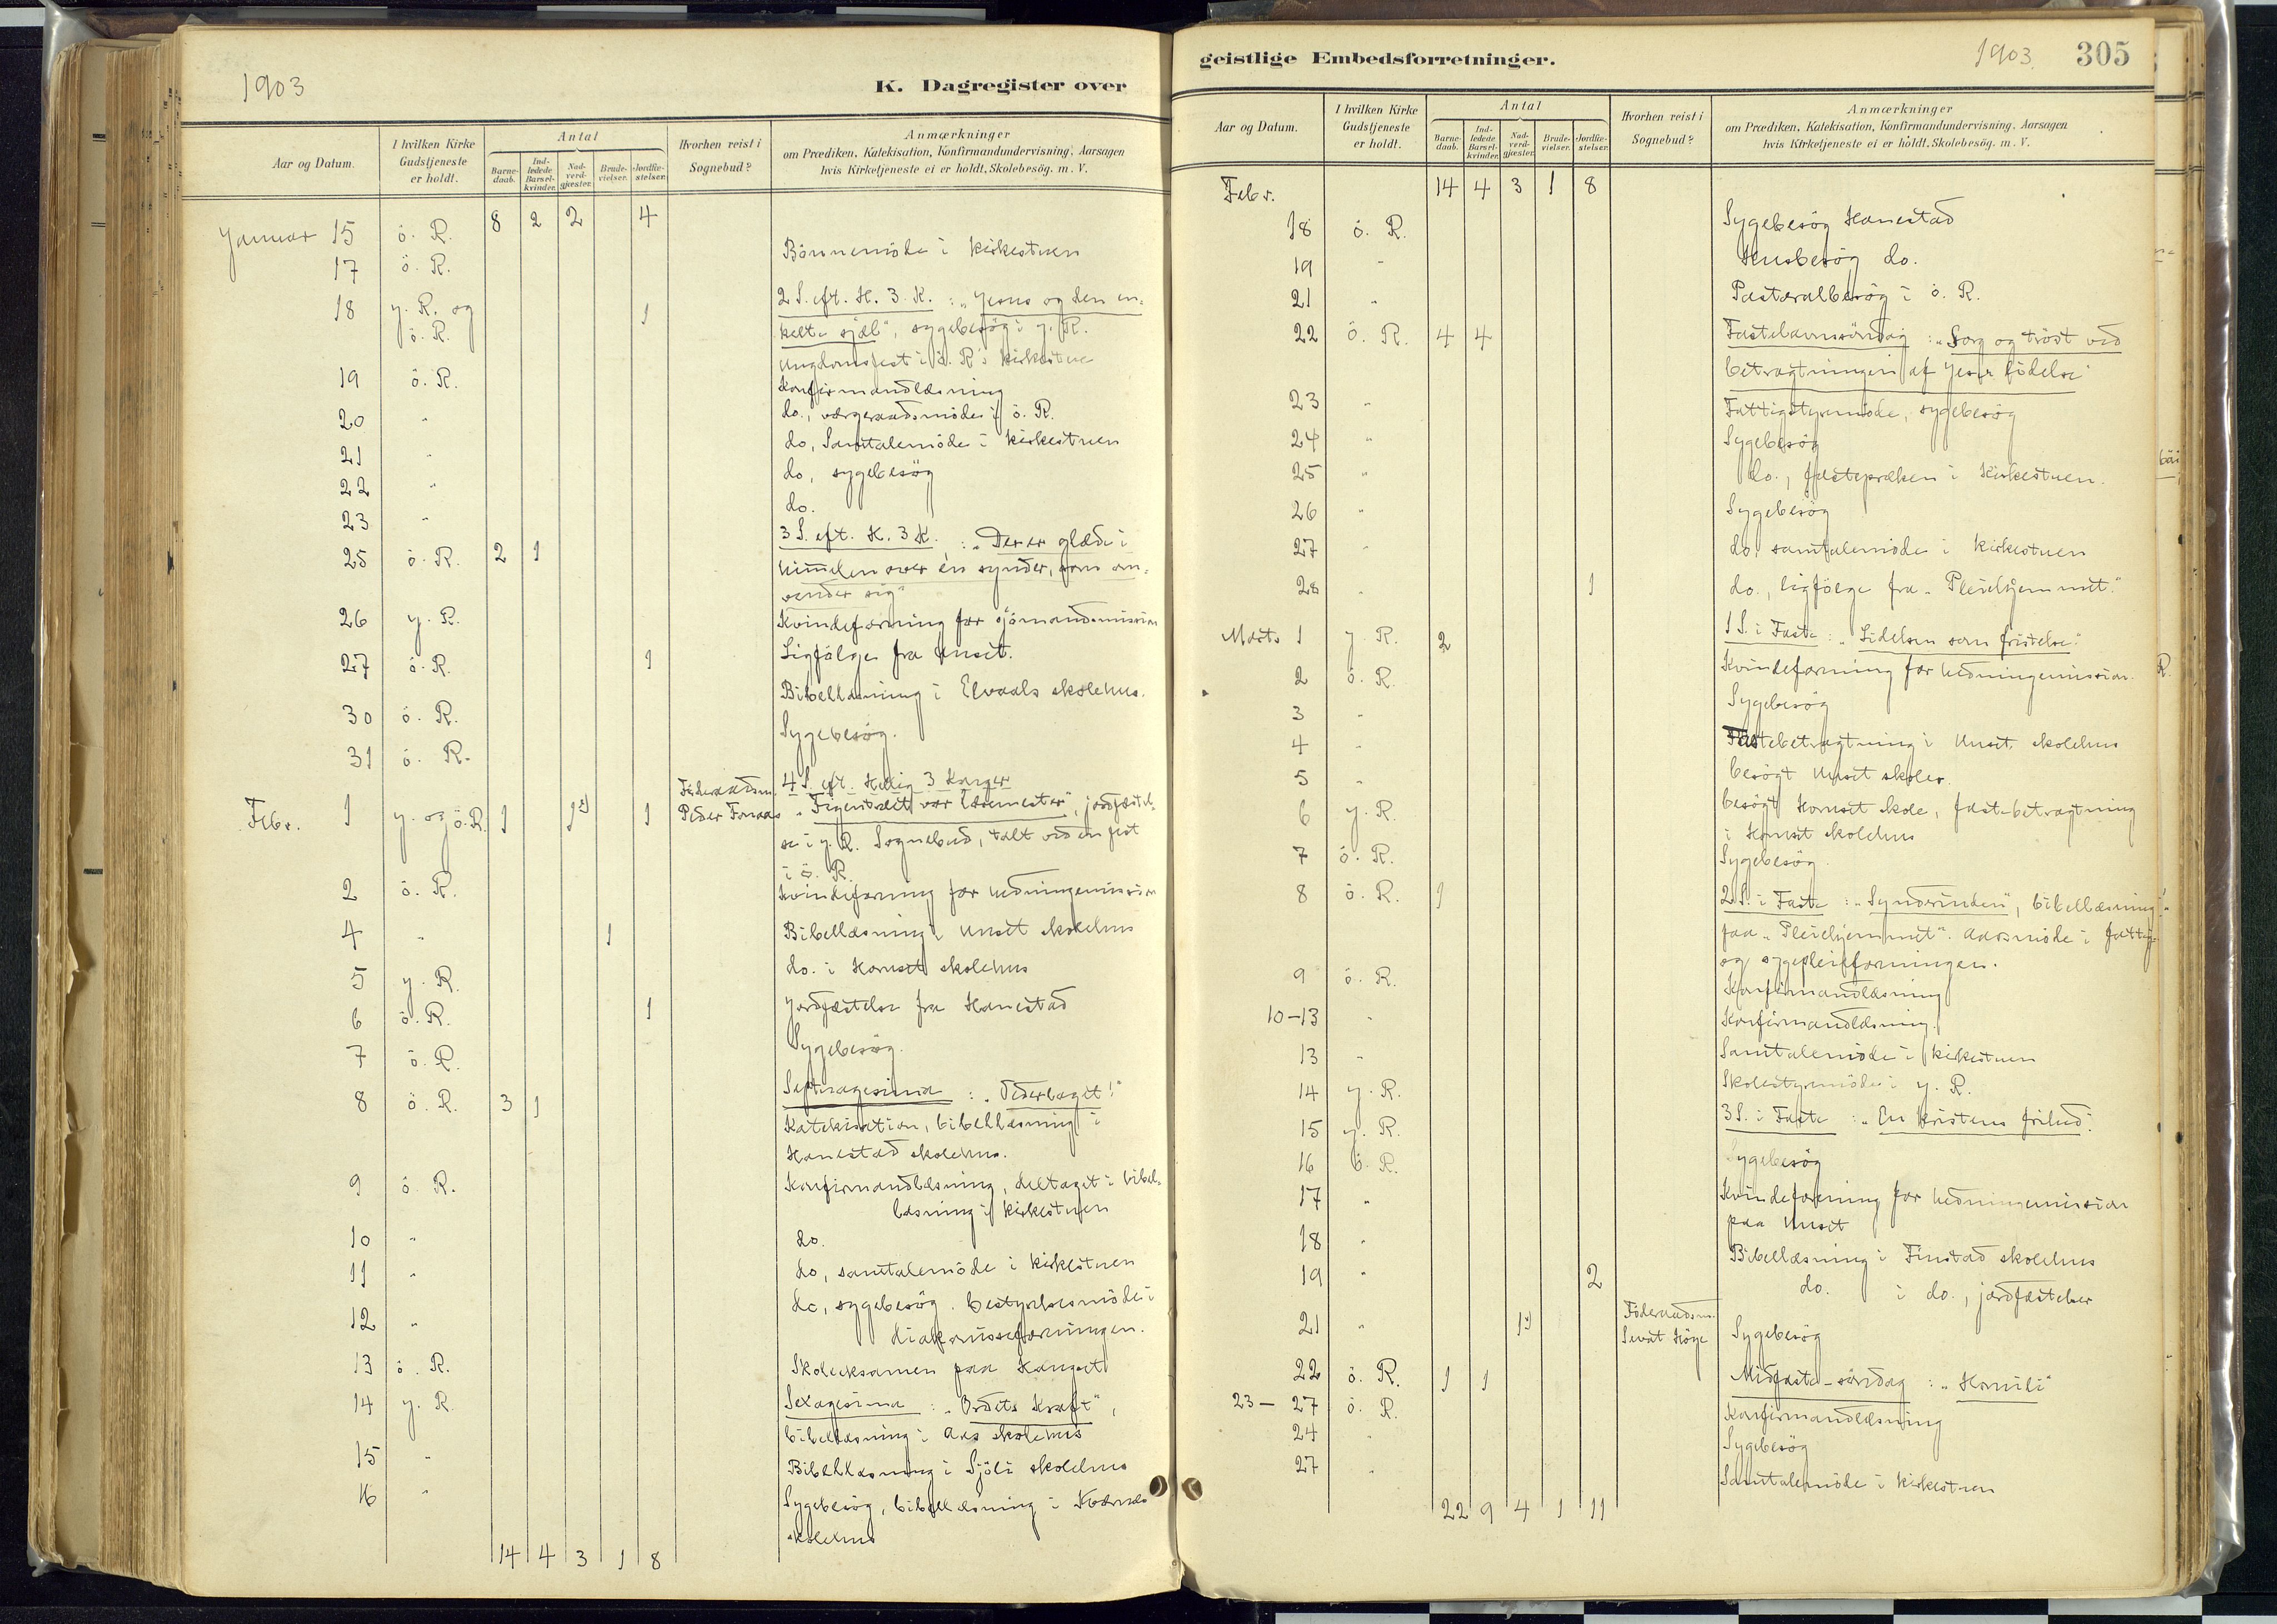 1903
K. Dagregister over
Aar og Datum.
I hvilken Kirke
Gudstjeneste
er holdt.
Antal
Barne-
daab.
Ind-
ledede
Barsel-
kvinder.
Nad-
verd-
gjæster.
Brude-
vielser.
Jordfæ-
stelser.
Hvorhen reist i
Sognebud?
Anmærkninger
om Prædiken, Katekisation, Konfirmandundervisning, Aarsagen
hvis Kirketjeneste ei er holdt, Skolebesög. m. V.
8 2 2 4
Januar 15 ö. R. Bönnemöde i kirkestuen
17 ö. R.
18 y. R. og 1 2 S. eft. H. 3 K. : „Jesus og den en-
ö. R. kelte sjæl", sygebesög i y. R.
Ungdomsfest i ö. R's kirkestue
19 ö. R. Konfirmandlæsning
20 " do., værgeraadsmöde i ö. R.
21 " do, Samtalemöde i kirkestuen
22 " do, sygebesög
23 " do.
25 ö. R. 2 1 3 S. eft. H. 3 K. : „Der er glæde i
himmelen over en synder, som om-
vender sig"
26 y. R. Kvindeforening for sjömandsmission
27 ö. R. 1 Ligfölge fra Unset.
Bibellæsning i Elvaals skolehus.
30 ö. R. Sygebesög.
31 ö. R.
Föderaadsm. 4 S. eft. Hellig 3 Konger
Febr. 1 y. og ö. R. 1 1 1 Peder „Figentræet vor læremester", jordfæstel-
se i y. R. Sognebud, talt ved en fest
i ö. R.
2 ö. R. Kvindeforening for hedningemission
4 " 1 Bibellæsning i Unset skolehus
5 y. R. do. i Hornset skolehus
6 ö. R. 1 Jordfæstelse fra Hanestad
7 ö. R. Sygebesög.
8 ö. R. 3 1 Septuagesima : „Vederlaget!"
Katekisation, bibellæsning i
Hanestad skolehus.
9 ö. R. Konfirmandlæsning, deltaget i bibel-
læsning i kirkestuen
10 " do.
11 " do, samtalemöde i kirkestuen
12 " do, sygebesög. bestyrelsesmöde i
diakonisseforeningen.
13 ö. R. Skoleeksamen paa
14 y. R. Sexagesima : „Ordets Kraft",
bibellæsning i Aas skolehus
15 " Bibellæsning i Sjöli skolehus
16 " Sygebesög, bibellæsning i
skolehus
14 4 3 1 8
geistlige Embedsforretninger.
1903.
305
Aar og Datum.
I hvilken Kirke
Gudstjeneste
er holdt.
Antal
Barne-
daab.
Ind-
ledede
Barsel-
kvinder.
Nad-
verd-
gjæster.
Brude-
vielser.
Jordfæ-
stelser.
Hvorhen reist i
Sognebud?
Anmærkninger
om Prædiken, Katekisation, Konfirmandundervisning, Aarsagen
hvis Kirketjeneste ei er holdt, Skolebesög. m. V.
Febr. 14 4 3 1 8
18 ö. R. Sygebesög Hanestad
19 " Husbesög do.
21 " Pastoralbesög i ö. R.
22 ö. R. 4 4 Fastelavnssöndag : „Sorg og tröst ved
betragtningen af Jesu födelse"
23 " Fattigstyremöde, sygebesög
24 " Sygebesög
25 " do., fastepræken i Kirkestuen.
26 " Sygebesög
27 " do. samtalemöde i kirkestuen
28 " 1 do., ligfölge fra „Pleiehjemmet."
Marts 1 y. R. 2 1 S. i Faste : „Lidelsen som fristelse."
2 ö. R. Kvindeforening for hedningemission.
3 " Sygebesög
4 " Fastebetragtning i Unset skolehus
5 " besögt Unset skoler.
6 y. R. besögt Hornset skole, fastebetragtning
i Hornset skolehus
7 ö. R. Sygebesög.
8 ö. R. 1 2 S. i Faste : „Synderinden", bibellæsning
paa „Pleiehjemmet". Aarsmöde i fattig-
og sygepleieforeningen.
9 ö. R. Konfirmandlæsning
10-13 " Konfirmandlæsning.
13 " Samtalemöde i kirkestuen
14 y. R. Skolestyremöde i y. R.
15 y. R. 3 S. i Faste : „En kristens frihed."
16 ö. R. Sygebesög
17 " Kvindeforening for hedningemission
paa Unset
18 " Bibellæsning i Finstad skolehus
19 " 2 do. i do., jordfæstelser
Föderaadsm.
21 " 1 Sivat Höye Sygebesög
22 ö. R. 1 1 Midfaste-söndag : „Homili"
23-27 ö. R. Konfirmandlæsning
24 " Sygebesög
27 " Samtalemöde i kirkestuen
22 9 4 1 11